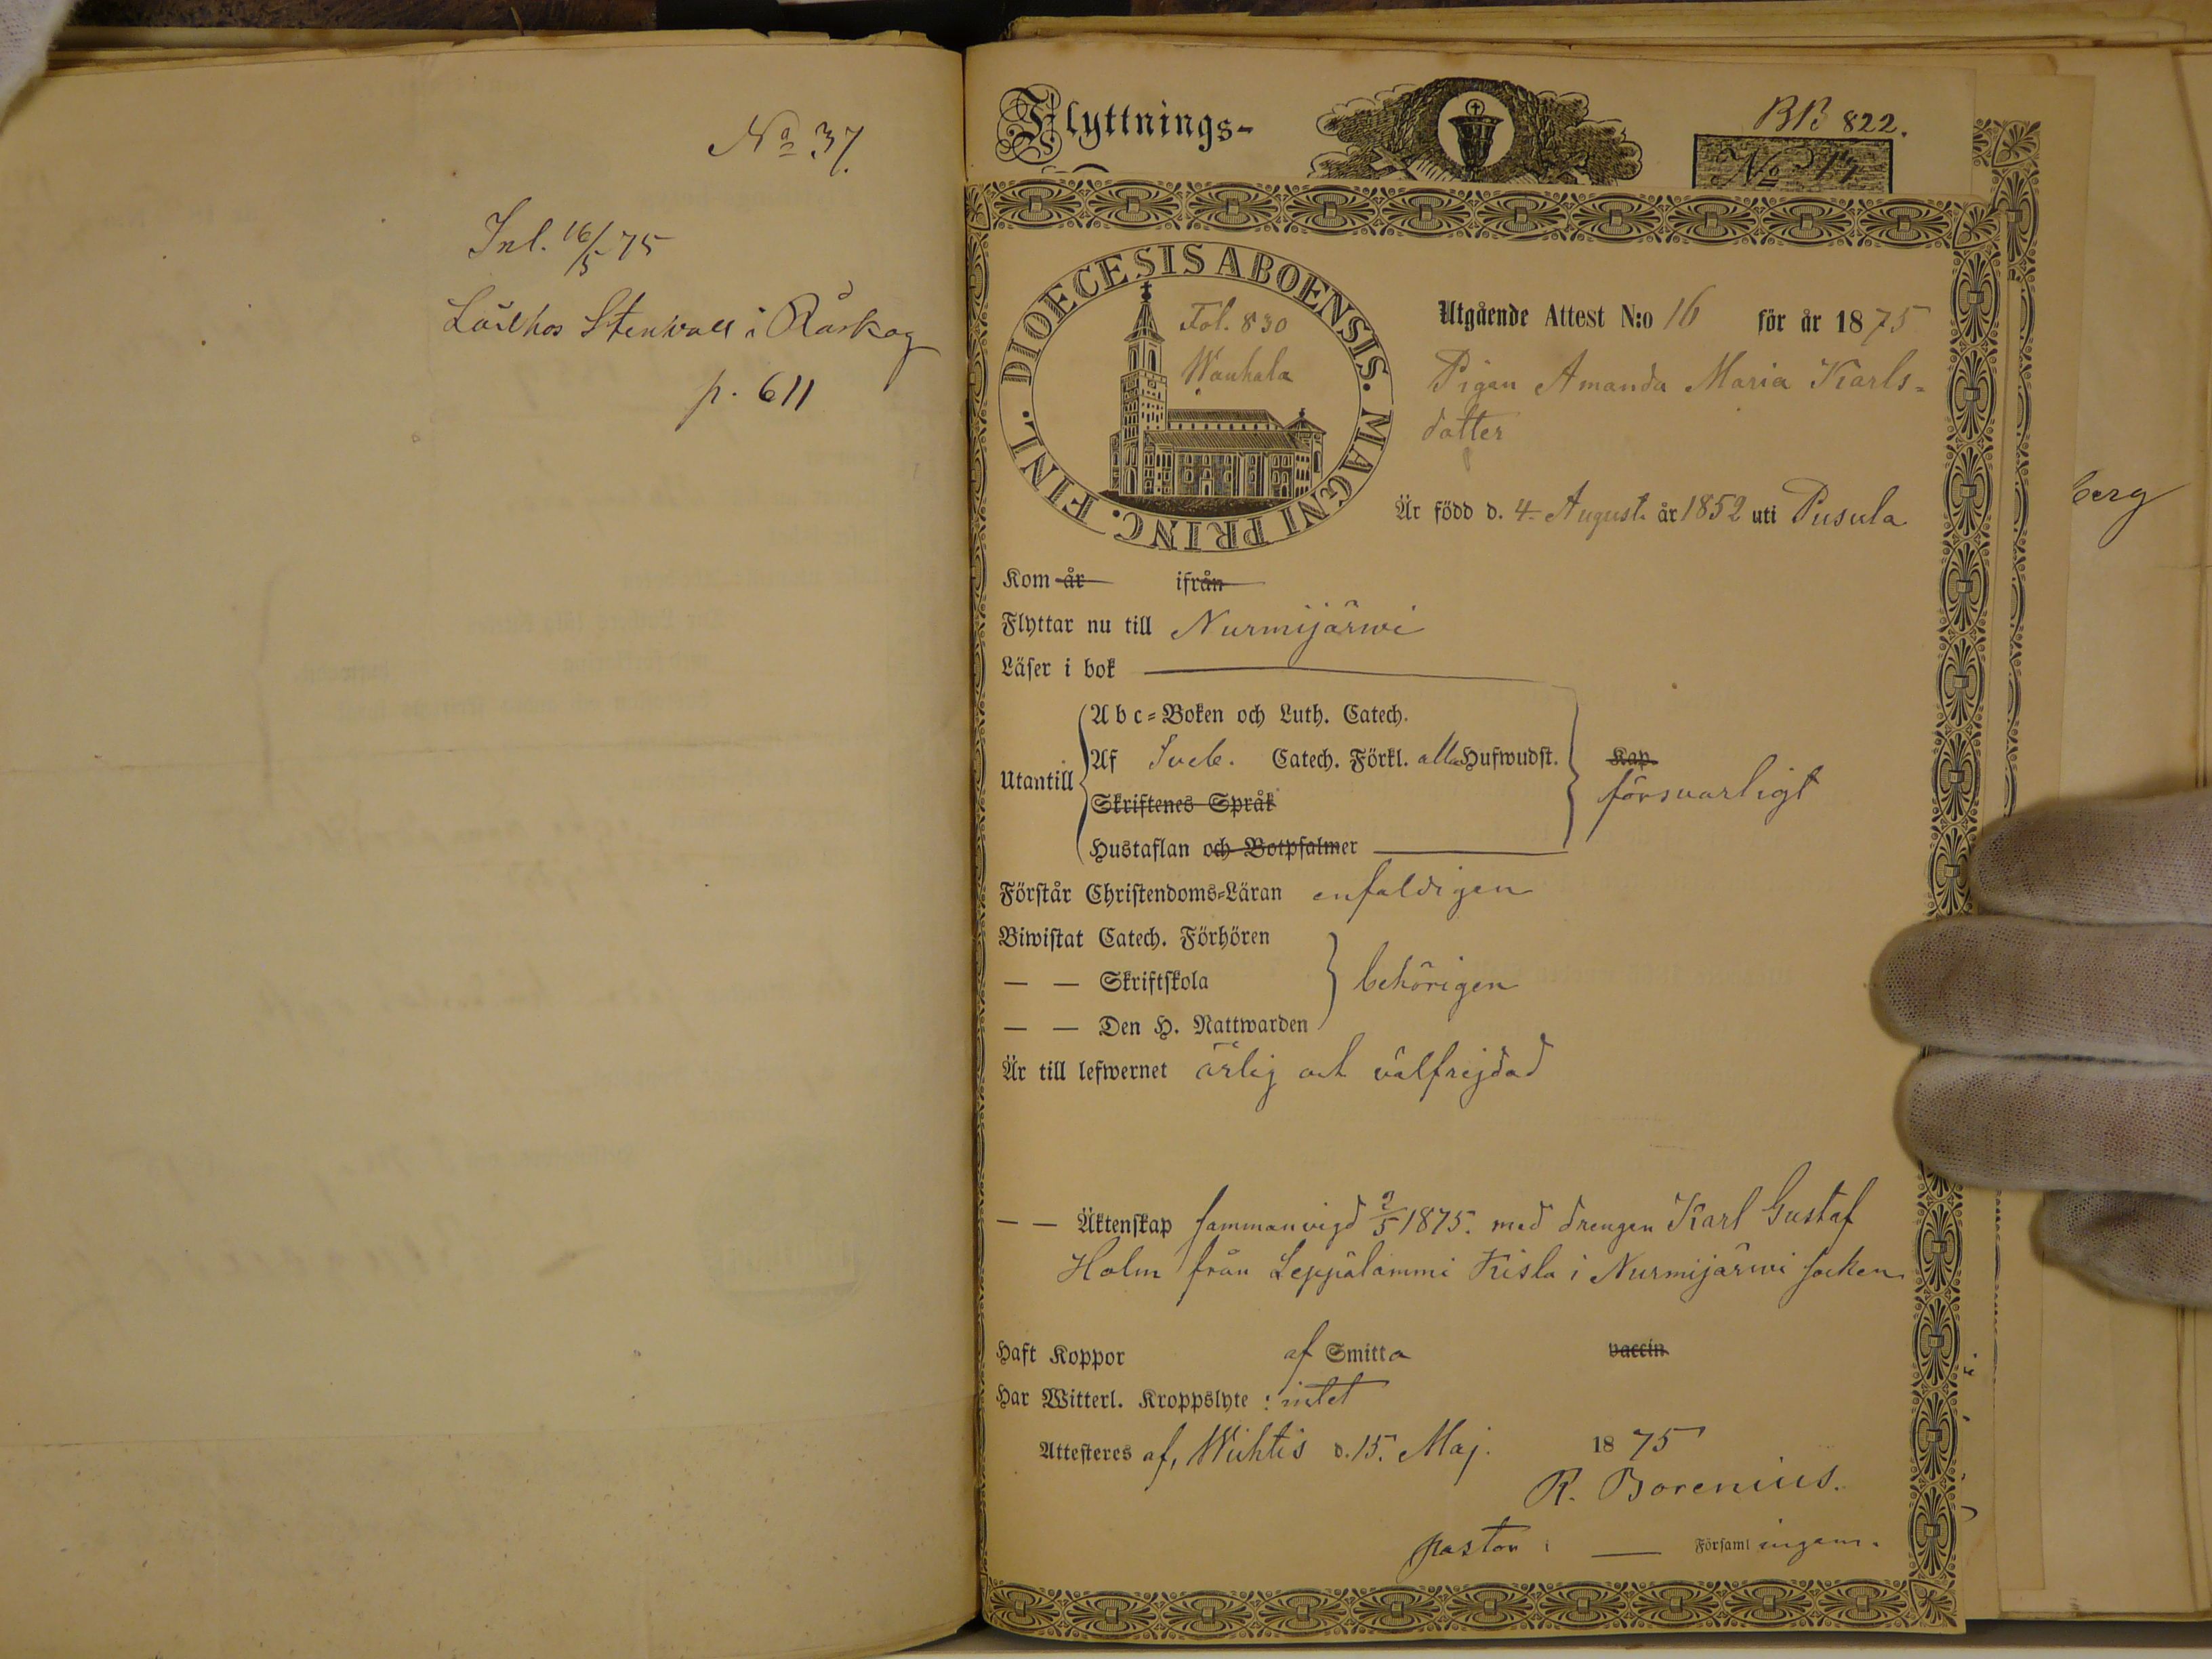 No 37.
Inl. 16/5 75
Stenvall i Råskog
p. 611
Flyttnings-
BB 822.
No
DIOECESIS ABOENSIS. MAGNI PRINC. FINL.
Fol. 830
Wanhala
Utgående Attest N:o 16 för år 1875
Pigan Amanda Maria Karls-
dotter
Är född d. 4 August. år 1852 uti Pusula
berg
Kom år ifrån
Flyttar nu till Nurmijärwi
Läser i bok
Utantill
Abc-Boken och Luth. Catech.
Af Sveb. Catech. Förkl. alla Hufwudst.
Skriftenes Språk
Hustaflan och Botpsalmer
Kap.
försvarligt
Förstår Christendoms-Läran enfaldigen
Biwistat Catech. Förhören
— — Skriftskola
— — Den H. Nattwarden
behörigen
Är till lefwernet ärlig och välfrejdad
— — Äktenskap sammanvigd 2/5 1875. med drengen Karl Gustaf
Holm från Leppälammi Krisla i Nurmijärwi socken.
Haft Koppor af Smitta vaccin
Har Witterl. Kroppslyte : intet
Attesteres af, Wichtis d. 15. Maj. 1875
R. Borenius.
pastor i — Församlingam.